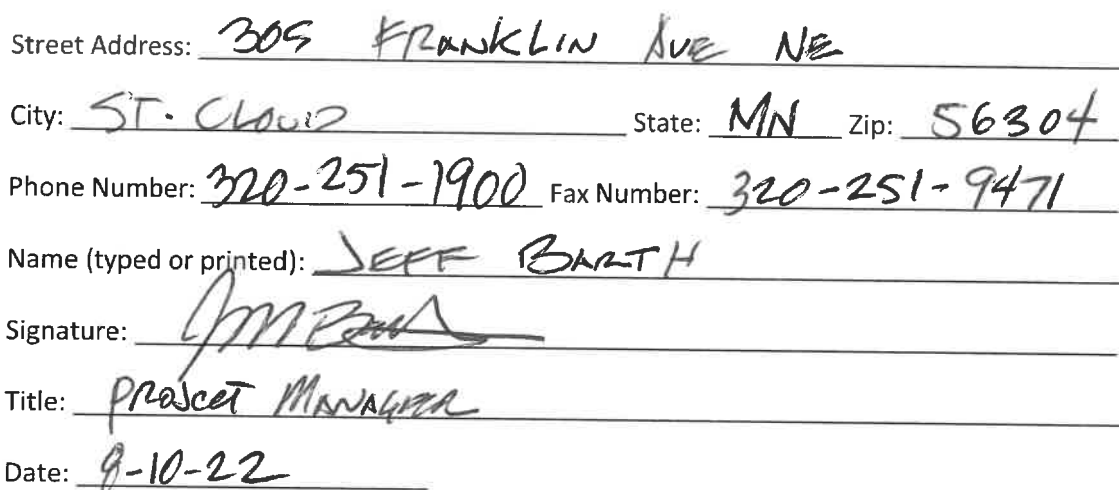 Street Address: 305 FRANKLIN AVE NE
City: ST. CLOUD State: MN Zip: 56304
Phone Number: 320-251-1900 Fax Number: 320-251-9471
Name (typed or printed): JEFF BARTH
Signature:
Title: PROJECT MANAGER
Date: 8-10-22